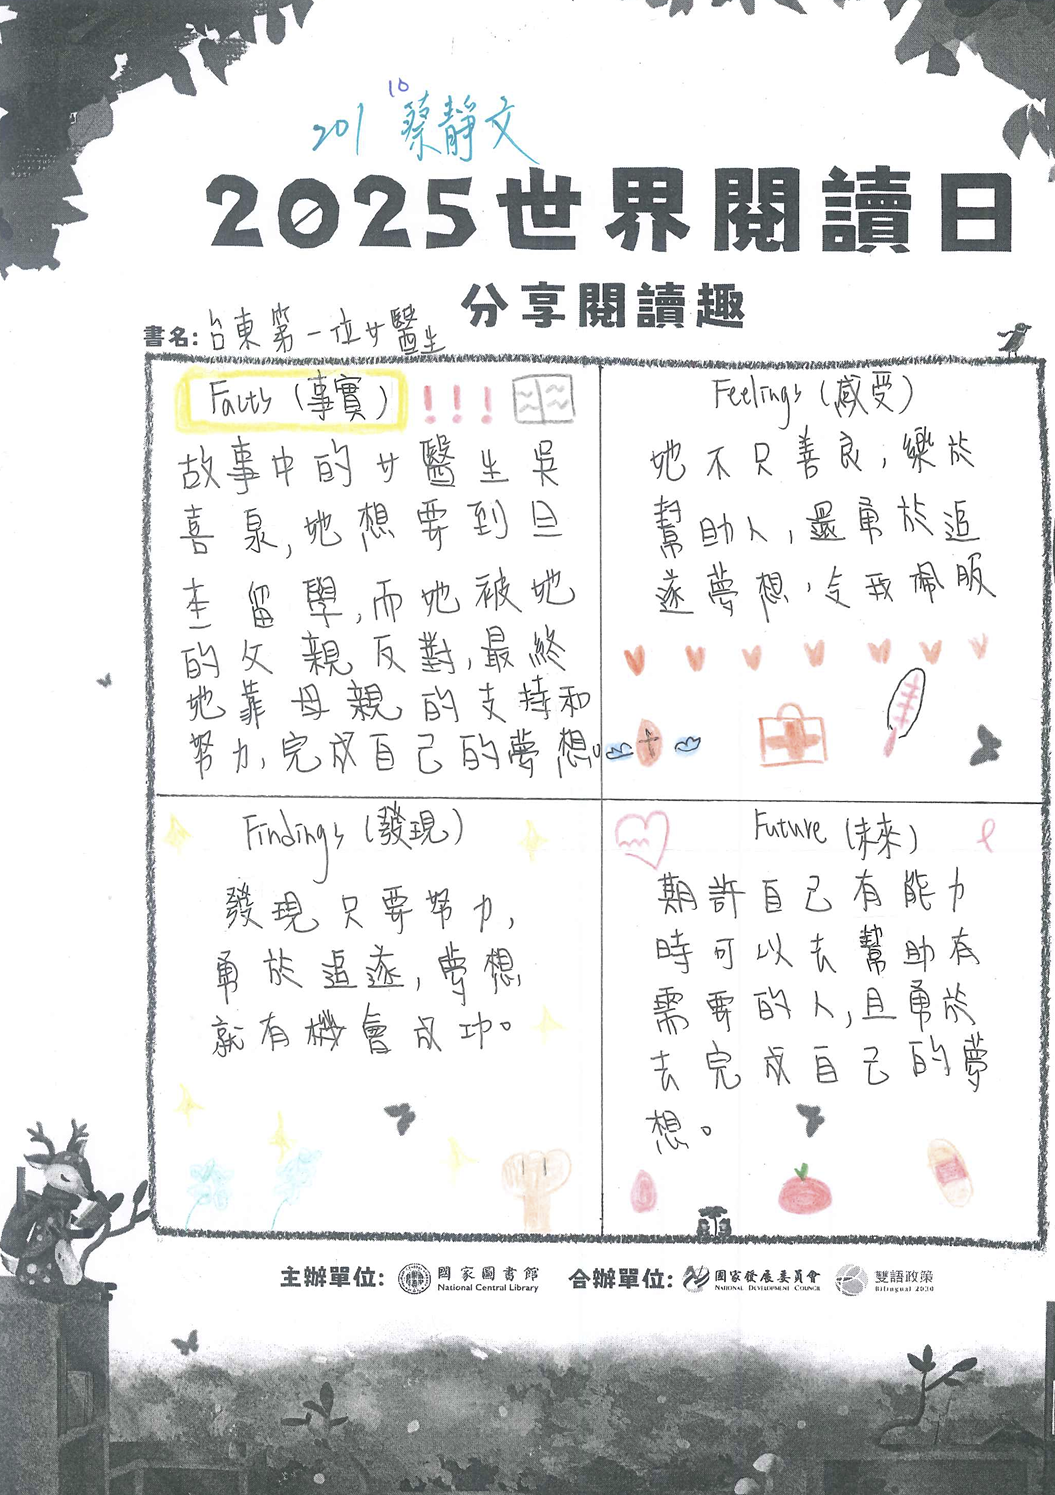 10
201 蔡靜文
2025世界閱讀日
分享閱讀趣
書名: 台東第一位女醫生
Facts (事實) !!!
故事中的女醫生吳
喜泉,她想要到日
本留學,而她被她
的父親反對,最終
她靠母親的支持和
努力,完成自己的夢想。
Feelings (感受)
她不只善良,樂於
幫助人,還勇於追
逐夢想,令我佩服
Findings (發現)
發現只要努力,
勇於追逐,夢想
就有機會成功。
Future (未來)
期許自己有能力
時可以去幫助有
需要的人,且勇於
去完成自己的夢
想。
主辦單位: 國家圖書館 National Central Library 合辦單位: 國家發展委員會 National Development Council 雙語政策 Bilingual 2030